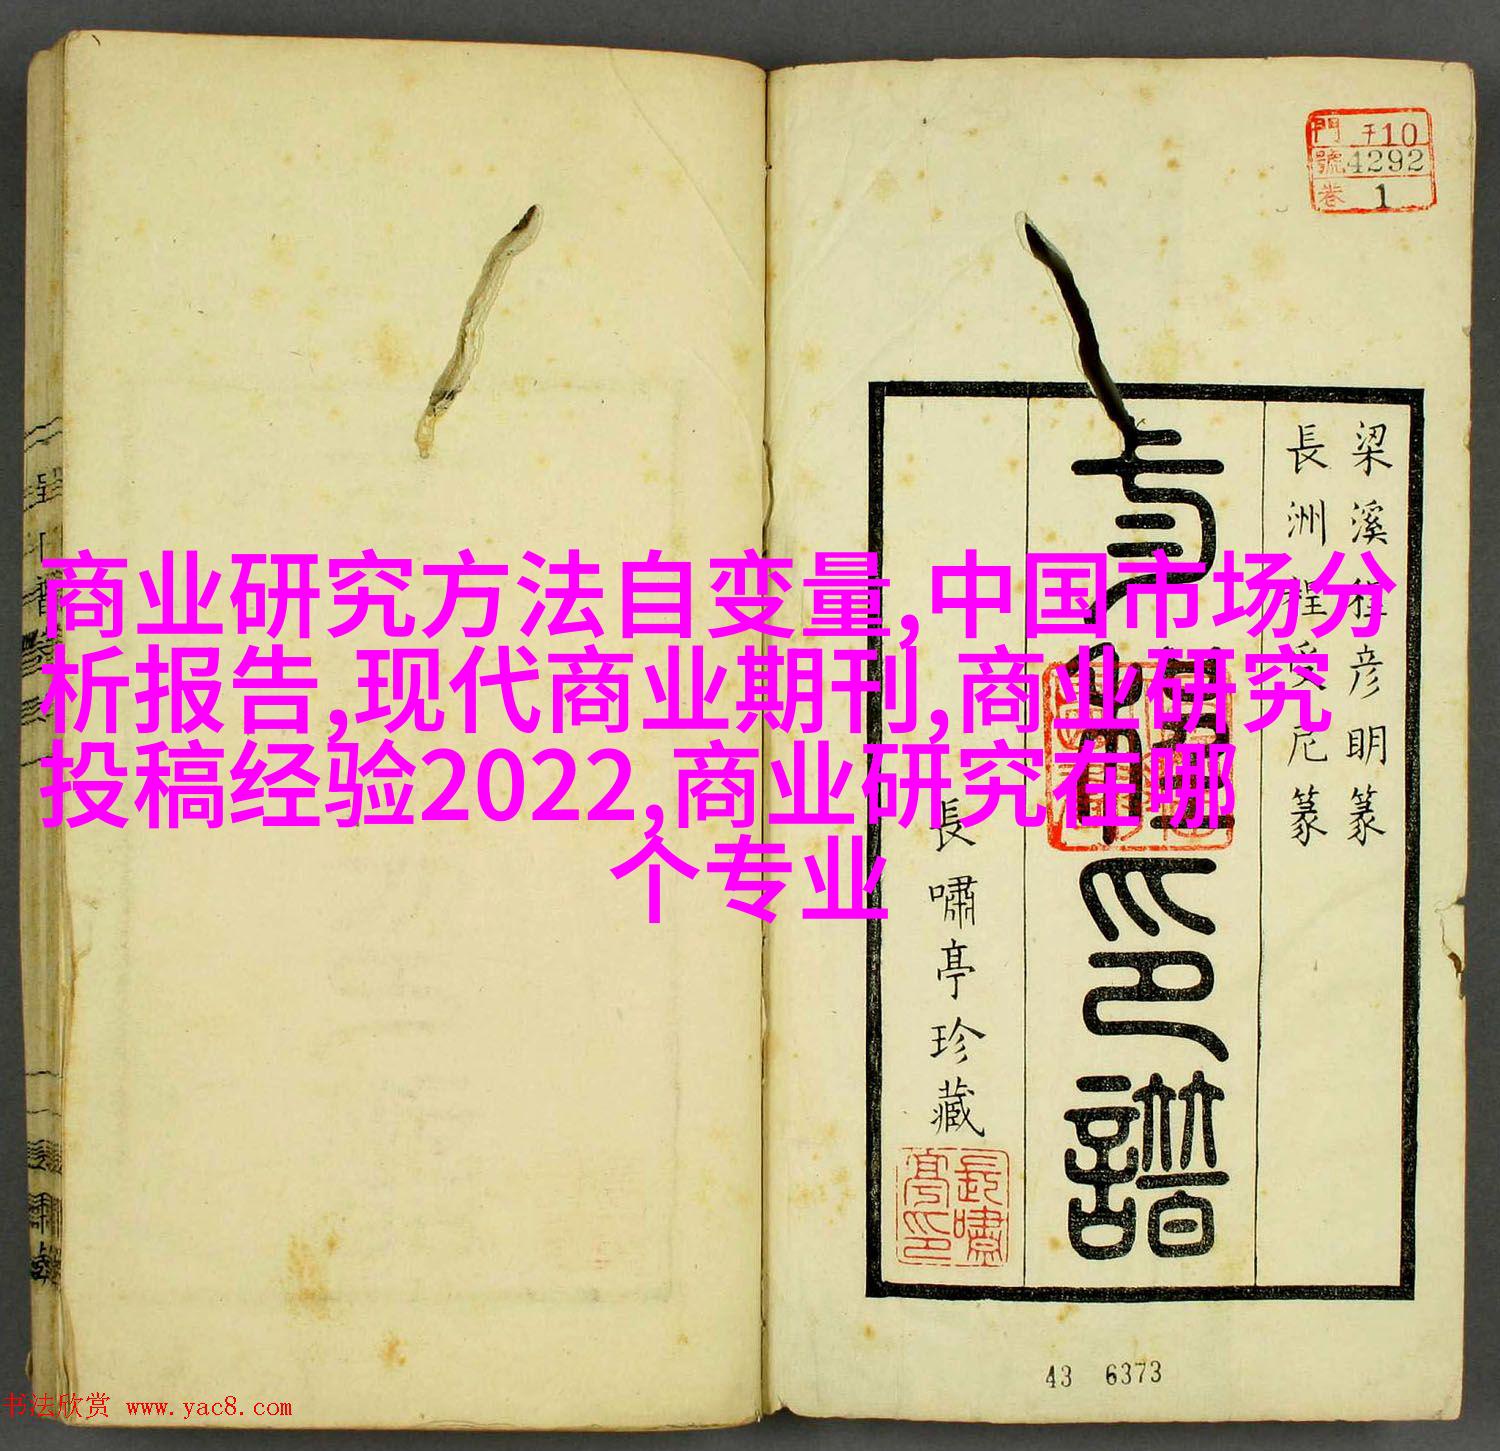 門 子10
號 4292
卷 1
梁溪程彦明篆
長洲程受尼篆
印譜
長嘯亭珍藏
長嘯亭印
商业研究方法自变量,中国市场分
析报告,现代商业期刊,商业研究
投稿经验2022,商业研究在哪
个专业
43 6373
书法欣赏 www.yac8.com